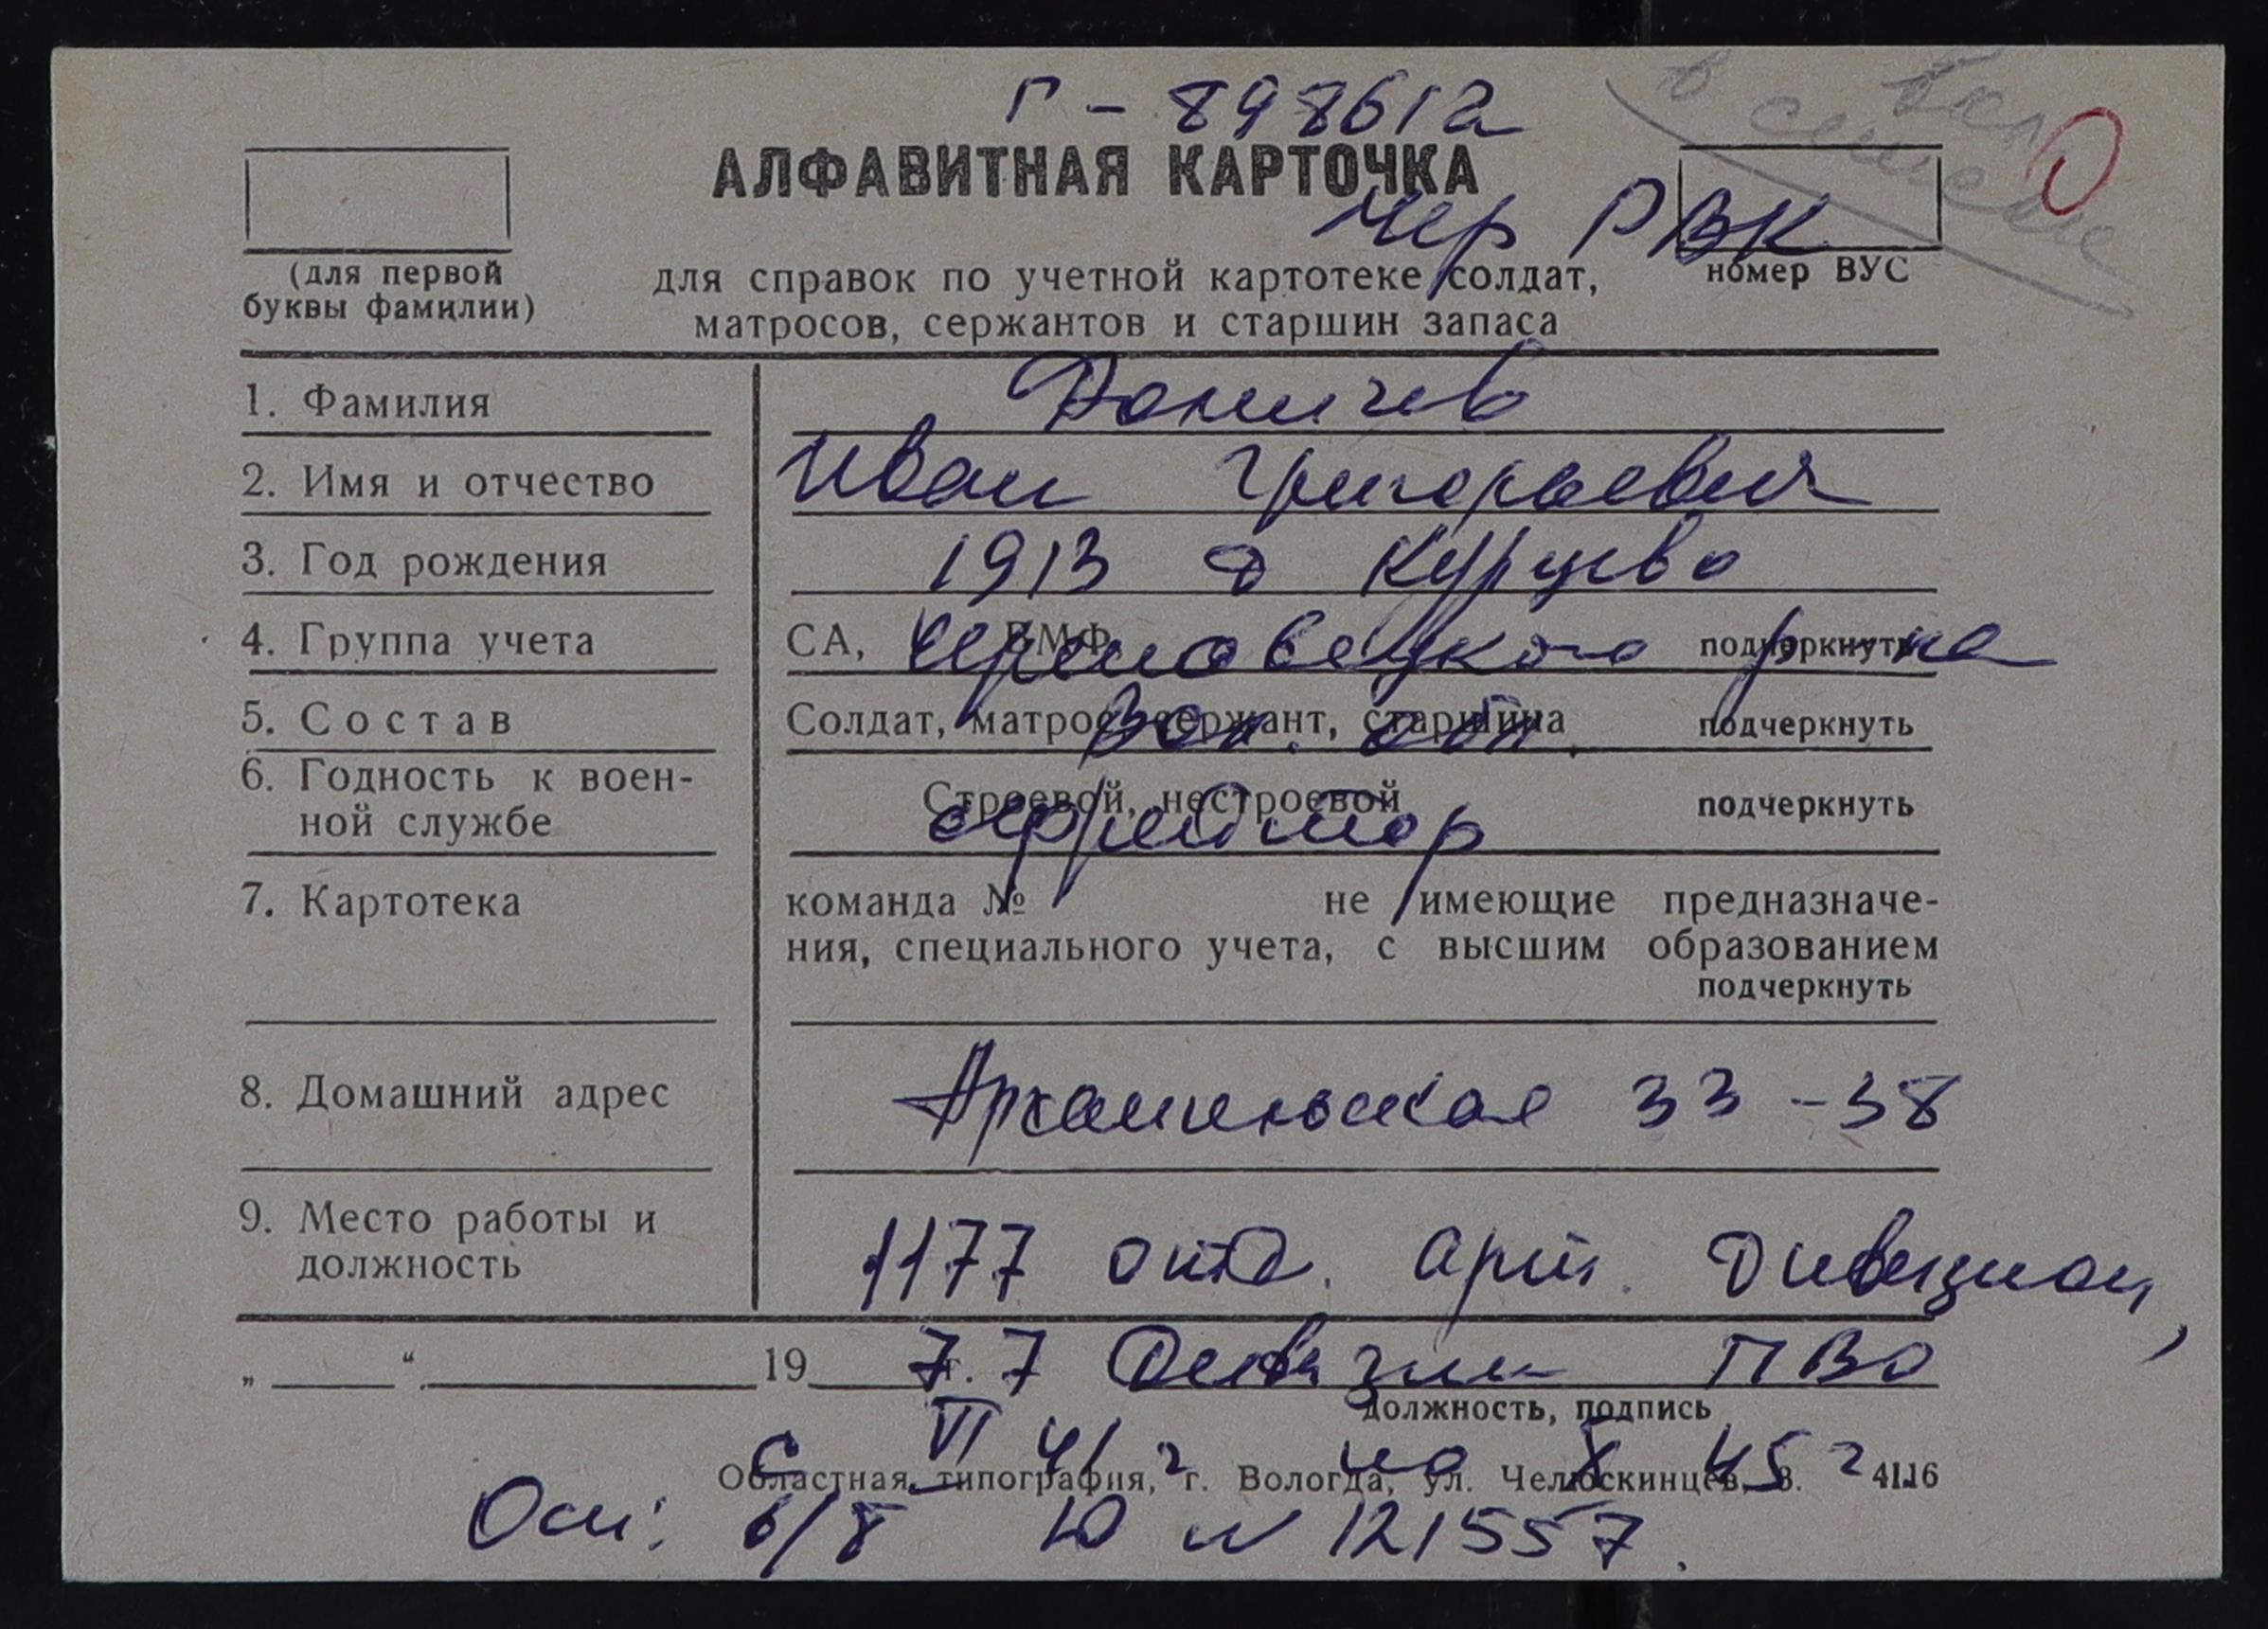 Г - 898612
АЛФАВИТНАЯ КАРТОЧКА
Чер РВК
(для первой буквы фамилии)
для справок по учетной картотеке солдат,
матросов, сержантов и старшин запаса
номер ВУС
1. Фамилия
Доничев
2. Имя и отчество
Иван Григорьевич
3. Год рождения
1913 д Курцево
4. Группа учета
СА, ВМФ подчеркнуть
Череповецкого р-на
5. Состав
Солдат, матрос, сержант, старшина подчеркнуть
6. Годность к воен-
ной службе
Строевой, нестроевой подчеркнуть
ефрейтор
7. Картотека
команда № не имеющие предназначе-
ния, специального учета, с высшим образованием
подчеркнуть
8. Домашний адрес
Архангельская 33 - 38
9. Место работы и
должность
1177 отд. арт. дивизион,
„ “ 19 г.
77 дивизии ПВО
должность, подпись
с VI 41 г по X 45 г
Областная типография, г. Вологда, ул. Челюскинцев, 3. 4116
Осн: в/б Ю № 121557.